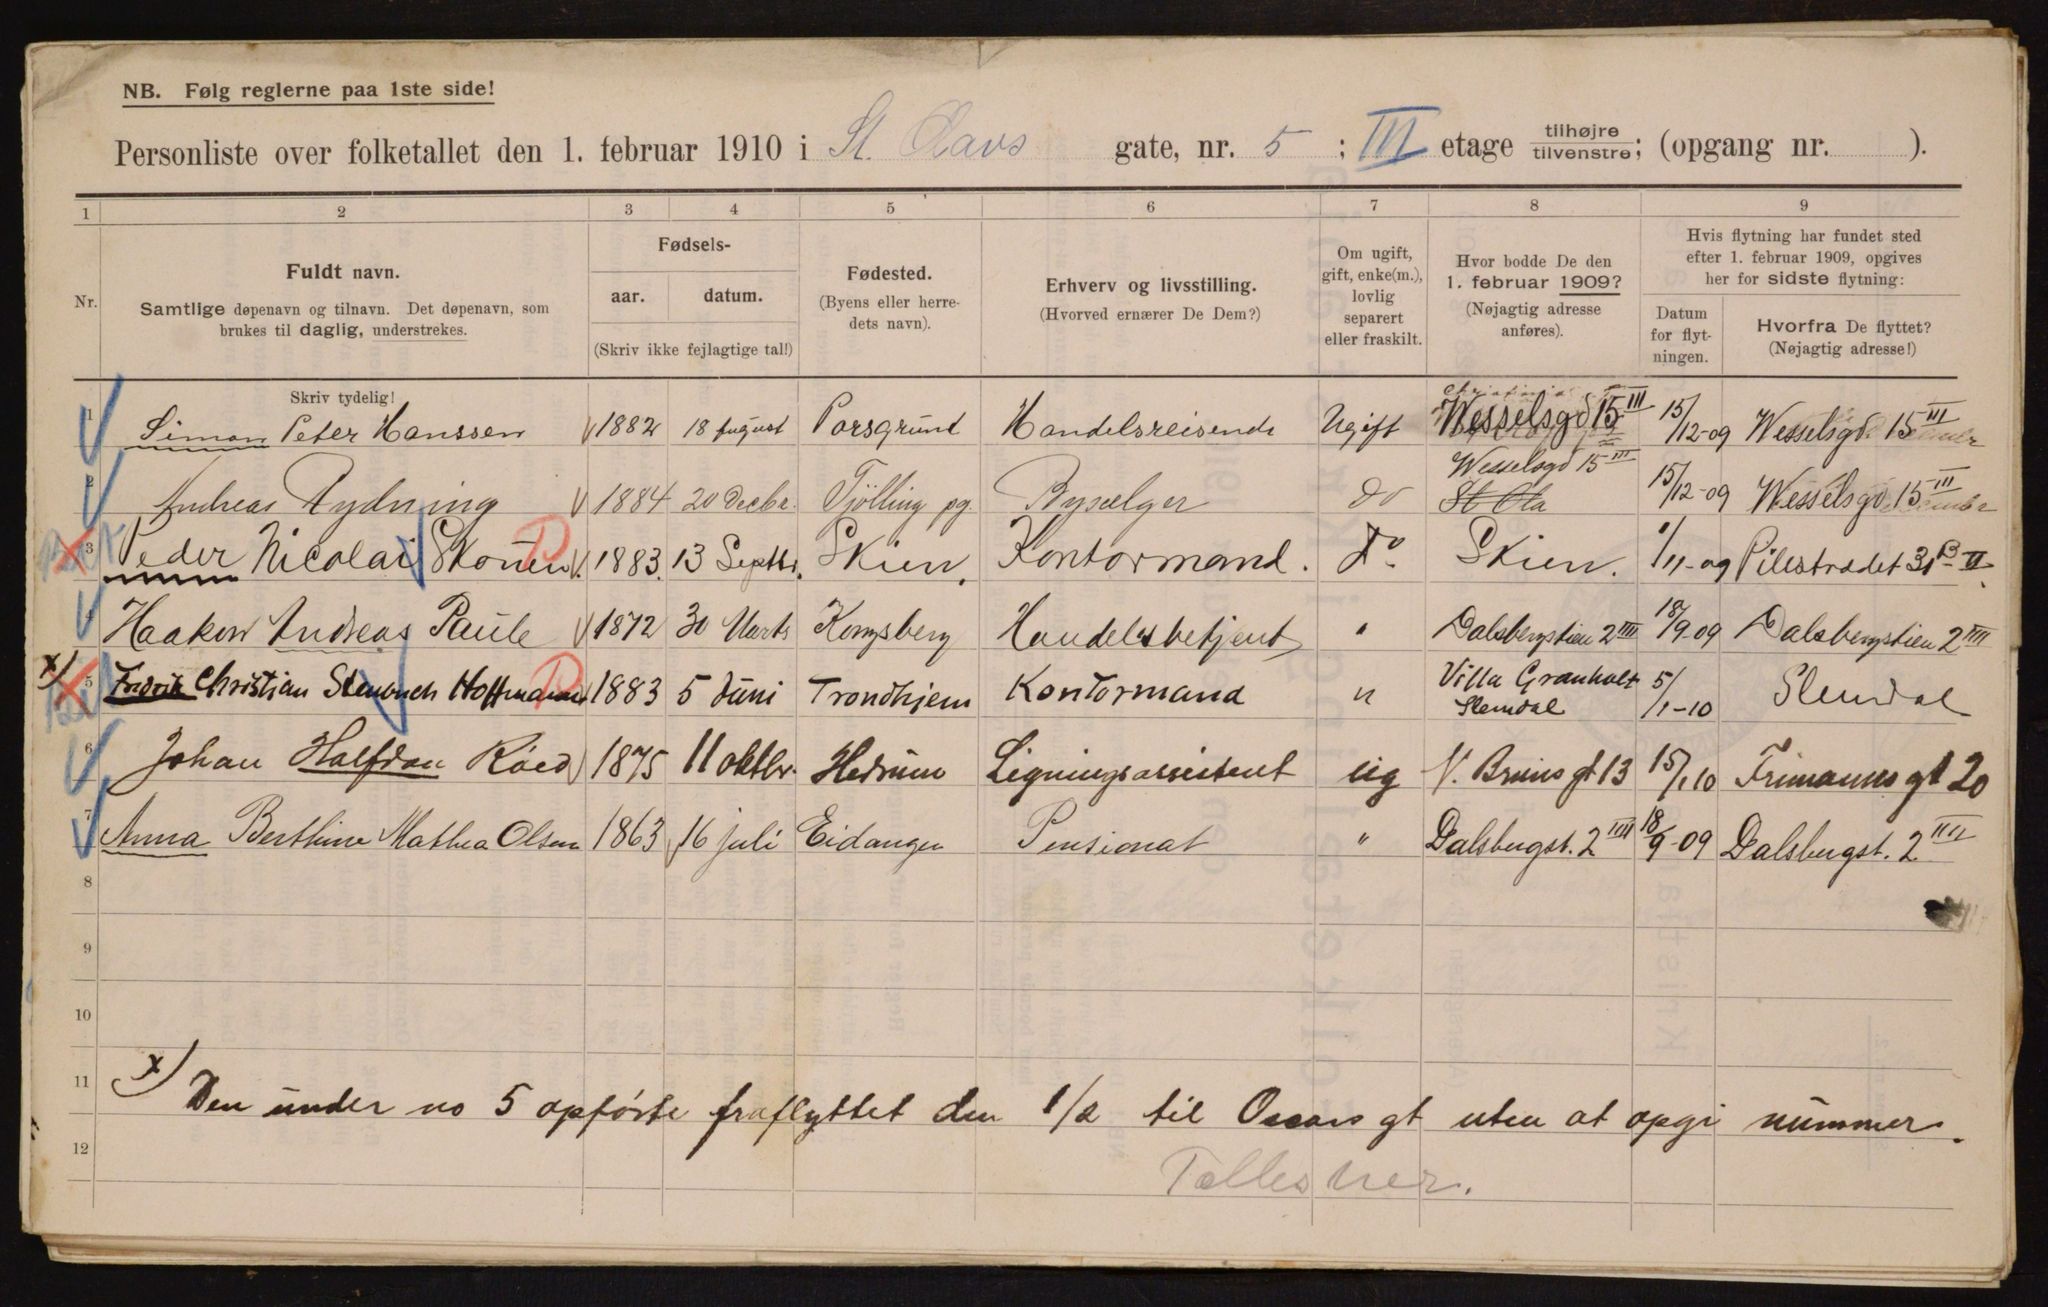 NB. Følg reglerne paa 1ste side!
Personliste over folketallet den 1. februar 1910 i St. Olavs gate, nr. 5 ; III etage tilhøjre/tilvenstre; (opgang nr. ).
1 2 3 4 5 6 7 8 9
Nr.
Fuldt navn.
Samtlige døpenavn og tilnavn. Det døpenavn, som
brukes til daglig, understrekes.
Fødsels-
aar. datum.
(Skriv ikke fejlagtige tal!)
Fødested.
(Byens eller herre-
dets navn).
Erhverv og livsstilling.
(Hvorved ernærer De Dem?)
Om ugift,
gift, enke(m.),
lovlig
separert
eller fraskilt.
Hvor bodde De den
1. februar 1909?
(Nøjagtig adresse
anføres).
Hvis flytning har fundet sted
efter 1. februar 1909, opgives
her for sidste flytning:
Datum
for flyt-
ningen.
Hvorfra De flyttet?
(Nøjagtig adresse!)
Skriv tydelig!
1 Simon Peter Hanssen 1882 18 august Porsgrund Handelsreisende Ugift Wesselsgd 15 III 15/12-09 Wesselsgd. 15 III
2 Andreas Rydning 1884 20 Decbr. Tjölling pg. Byselger do Wesselsgd 15 III St Ola 15/12-09 Wesselsgd 15 III
3 Peder Nicolai Skouen. 1883. 13 Septbr. Skien. Kontormand. Do. Skien. 1/11-09 Pilestrædet 31 B II.
4 Haakon Andreas Paule 1872 30 Marts Kongsberg Handelsbetjent " Dalsbergstien 2 IIII 18/9-09 Dalsbergstien 2 IIII
x) 5 Fredrik Christian Steubuch Hoffmann 1883 5 Juni Trondhjem Kontormand " Villa Granholt Slemdal 5/1-10 Slemdal
6 Johan Halfdan Röed 1875 11 oktbr. Hedrum Ligningsassistent ug V. Bruns gt 13 15/1 10 Frimanns gt 20
7 Anna Berthine Mathea Olsen 1863 16 juli Eidanger Pensionat " Dalsbergst. 2 IIII 18/9-09 Dalsbergst. 2 IIII
8
9
10
11 x) Den under no 5 opførte fraflyttet den 1/2 til Oscars gt uten at opgi nummer.
12 Tollesner.